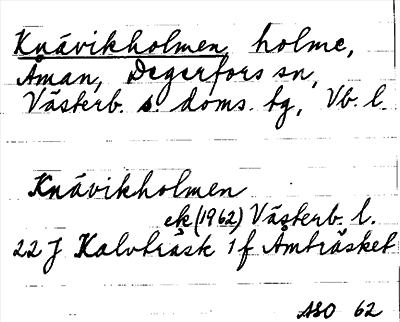 Knávikholmen, holme,
Åman, Degerfors sn,
Västerb. s. doms. tg, Vb. l.
Knávikholmen
ek (1962) Västerb. l.
22 J Kalvträsk 1 f Åmträsket
ASO 62